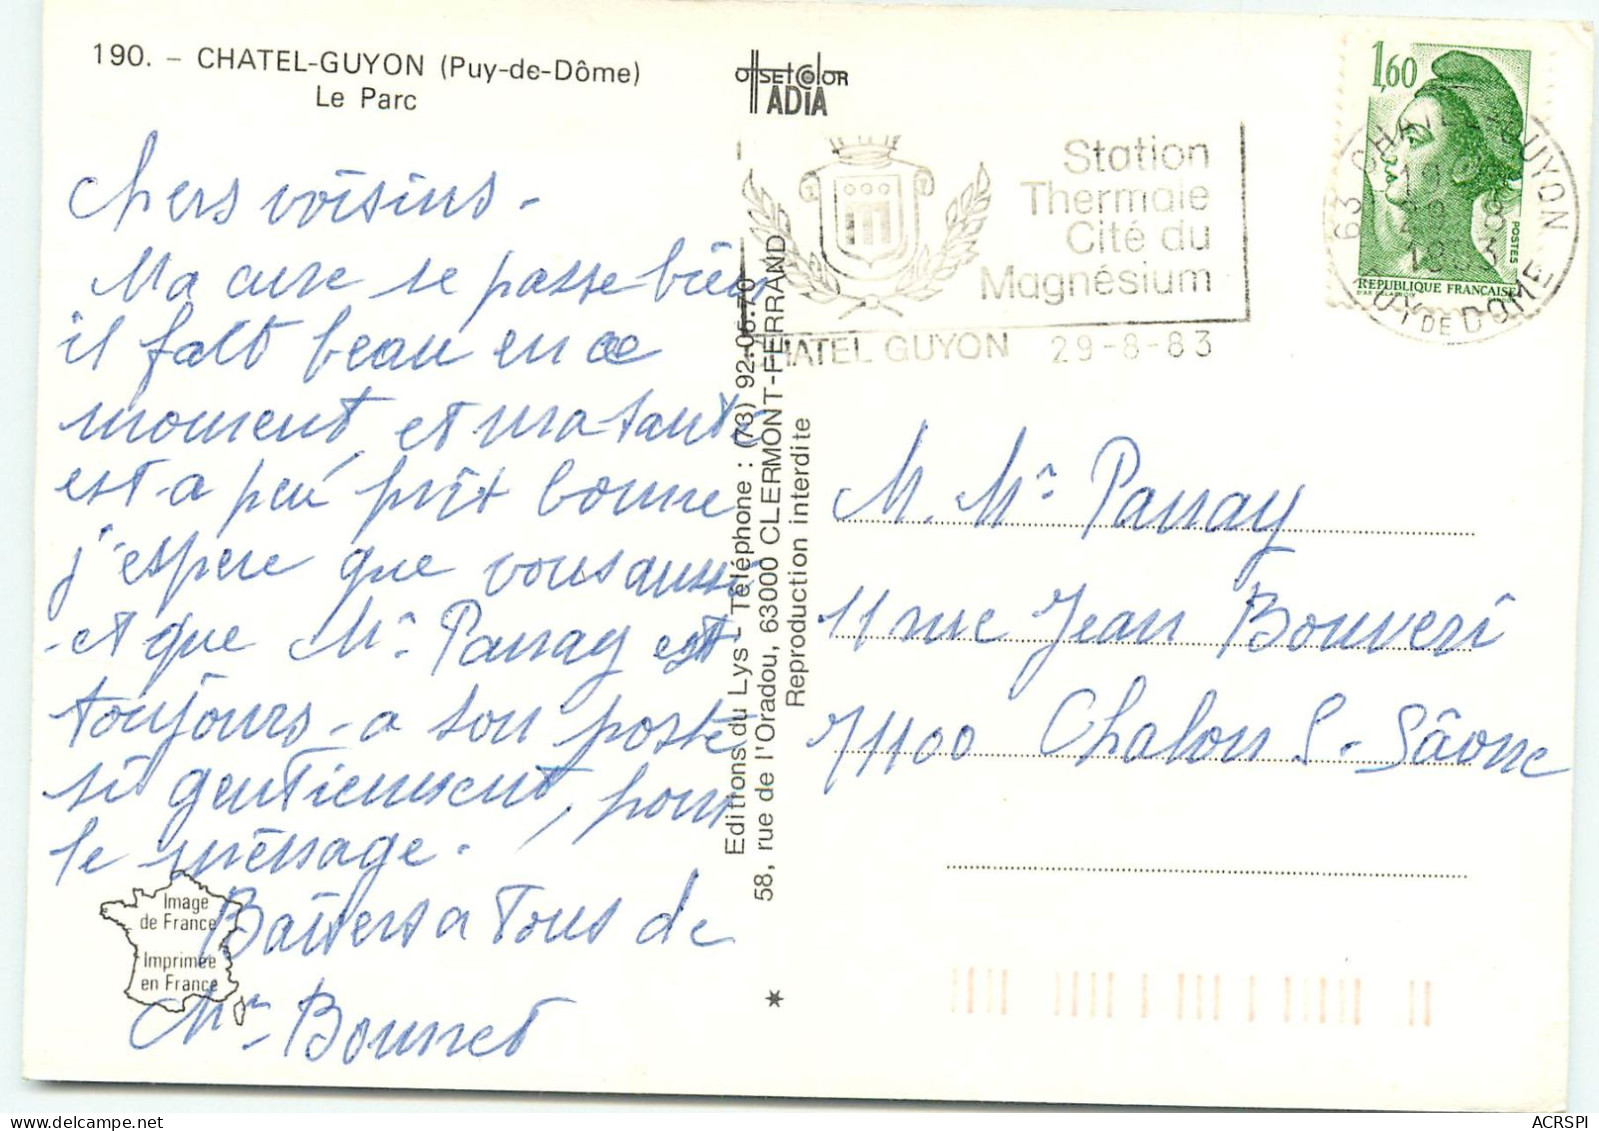 190. – CHATEL-GUYON (Puy-de-Dôme)
Le Parc
offSETCOLOR
ADIA
Chers voisins -
Ma cure se passe bien
il fait beau en ce
moment, et ma santé
est a peu prêt bonne
j'espere que vous aussi
et que Mr. Passay est
toujours - a son poste
si gentiement, pour
le mèssage.
Baisers a Tous de
Mme Bonnet
Image
de France
Imprimée
en France
Editions du Lys - Téléphone : (73) 92-05-70
58, rue de l'Oradou, 63000 CLERMONT-FERRAND
Reproduction interdite
Station
Thermale
Cité du
Magnésium
CHATEL GUYON 29-8-83
1,60
POSTES
REPUBLIQUE FRANCAISE
63 CHATEL-GUYON
PUY DE DOME
19 H
29 8
1983
M. Mr. Passay
11 rue Jean Bouveri
71100 Chalon S- Sâone
ACRSPI